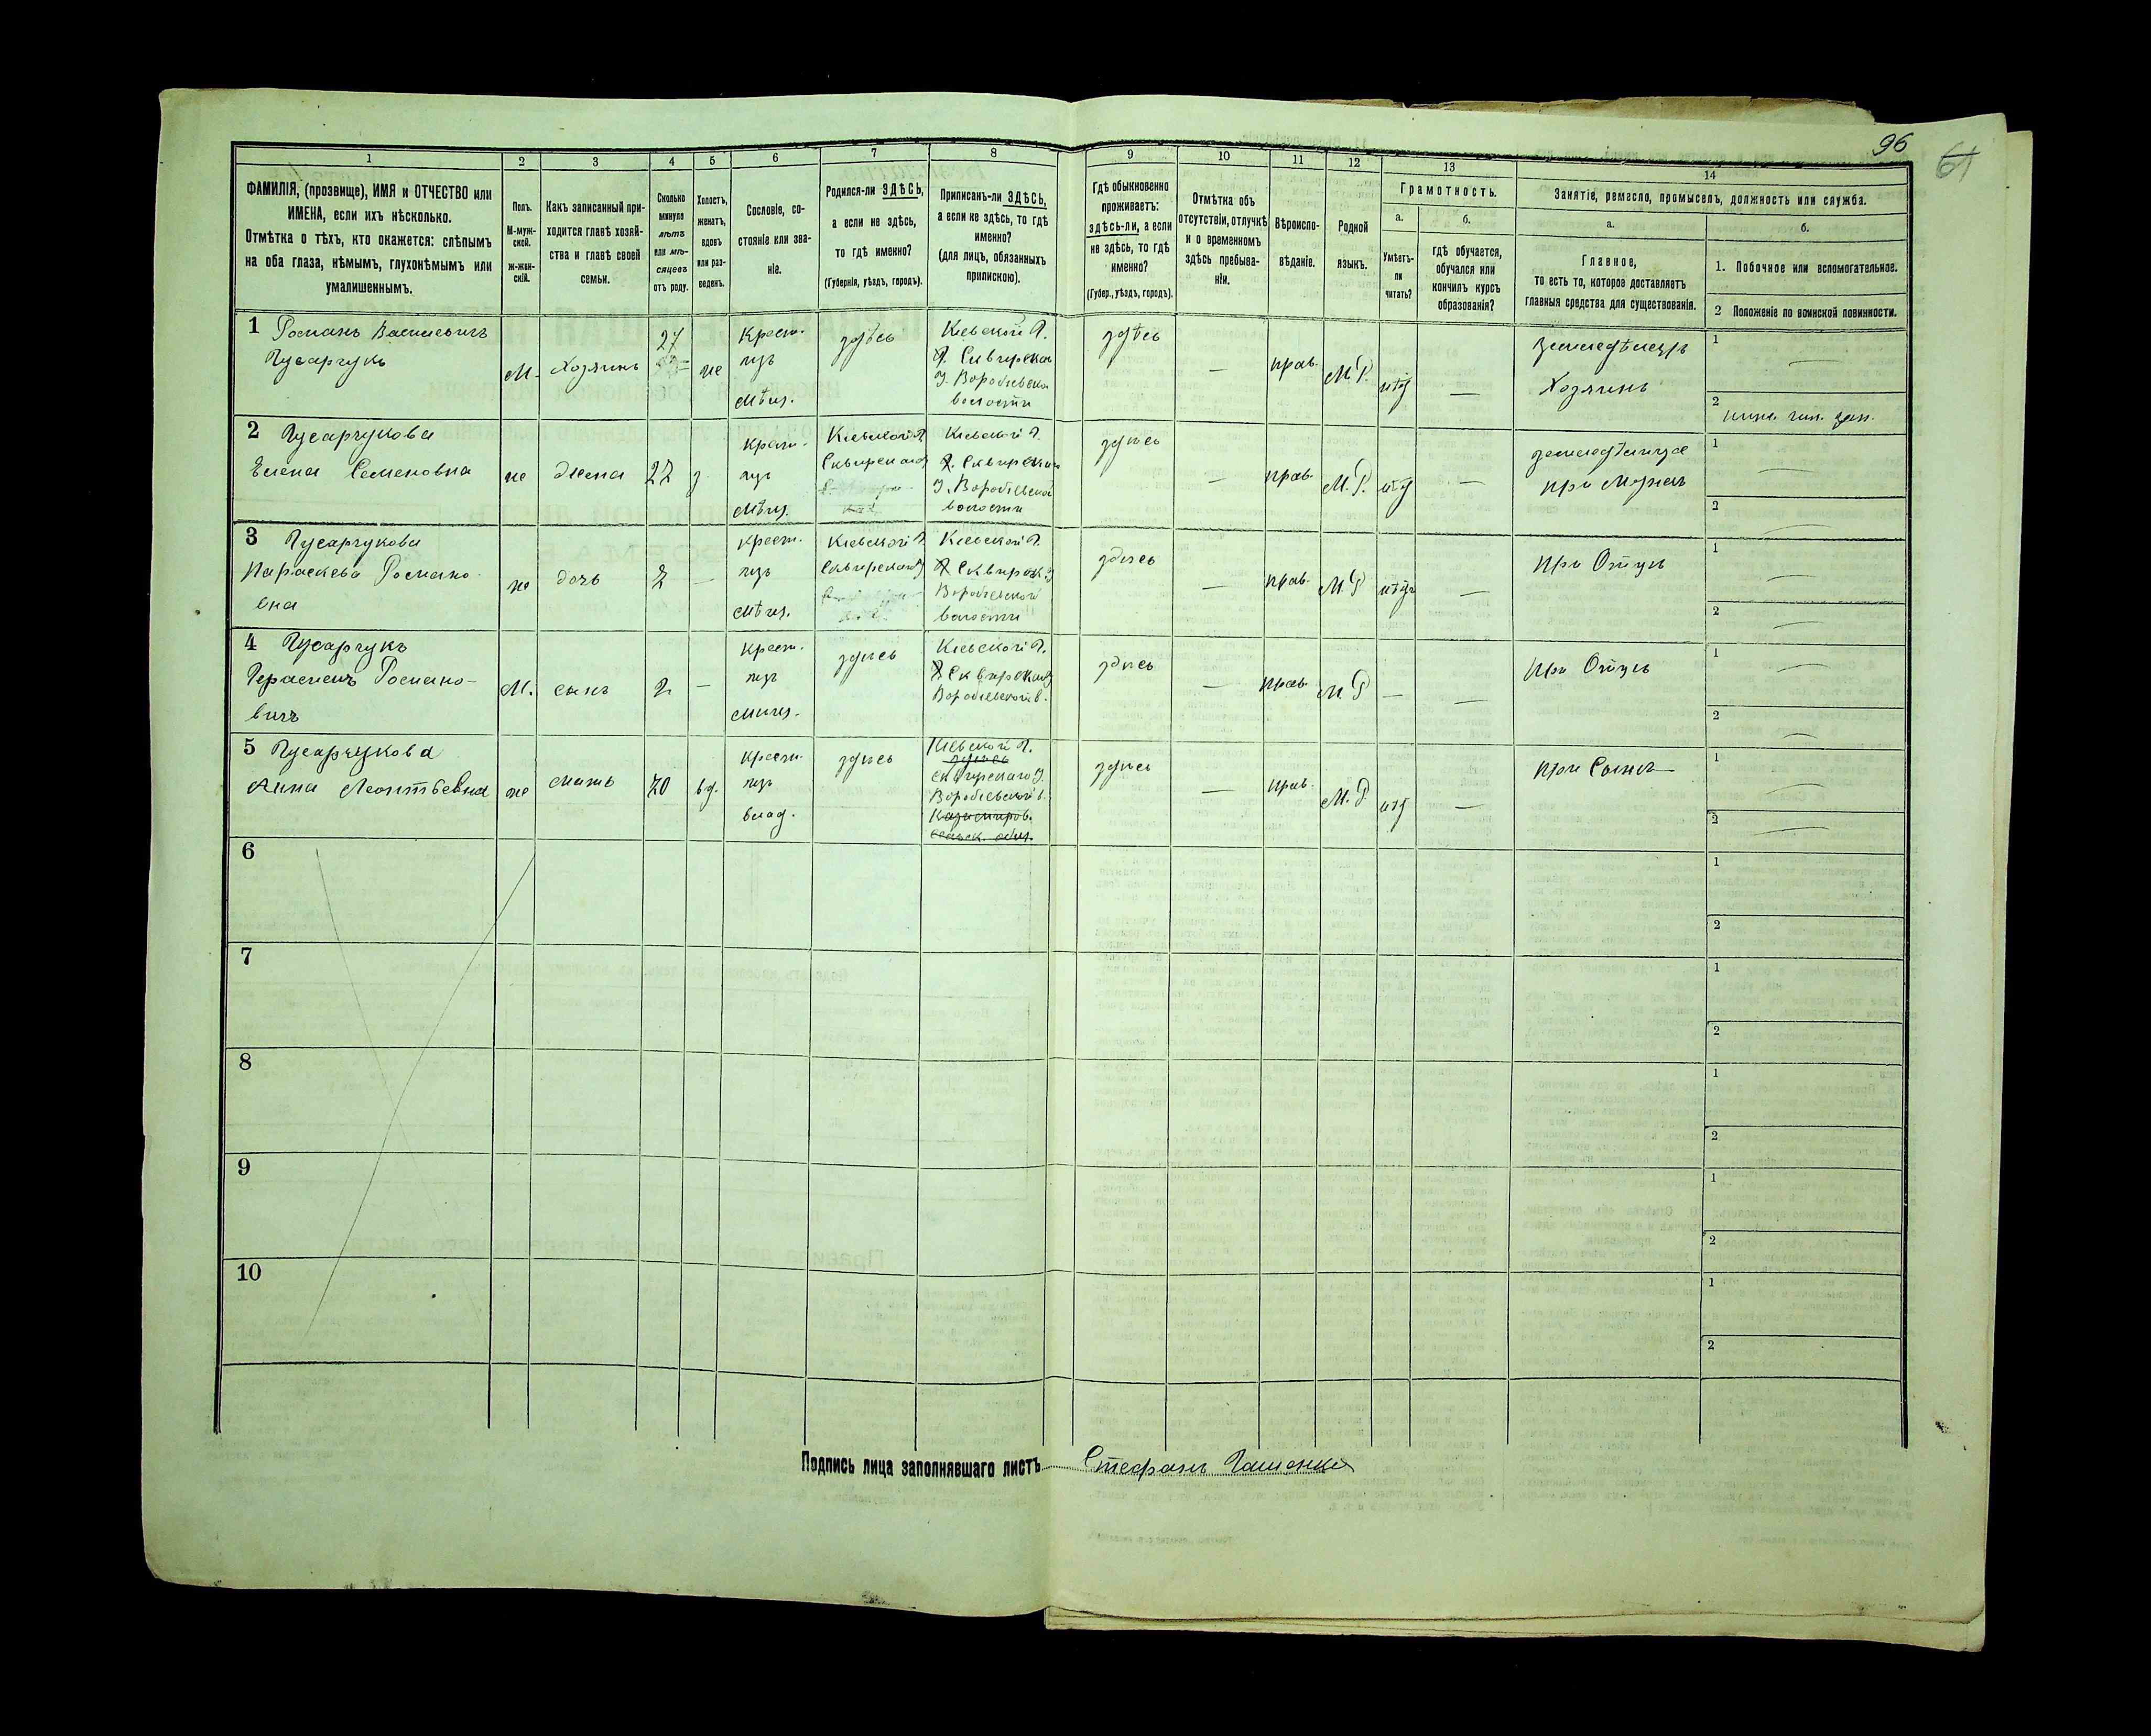 96
61
1 2 3 4 5 6 7 8 9 10 11 12 13 14
ФАМИЛІЯ, (прозвище), ИМЯ и ОТЧЕСТВО или
ИМЕНА, если ихъ нѣсколько.
Отмѣтка о тѣхъ, кто окажется: слѣпымъ
на оба глаза, нѣмымъ, глухонѣмымъ или
умалишеннымъ.
Полъ.
М-муж-
ской.
ж-жен-
скій.
Какъ записанный при-
ходится главѣ хозяй-
ства и главѣ своей
семьи.
Сколько
минуло
лѣтъ
или мѣ-
сяцевъ
отъ роду.
Холостъ,
женатъ,
вдовъ
или раз-
веденъ.
Сословіе, со-
стояніе или зва-
ніе.
Родился-ли ЗДѢСЬ,
а если не здѣсь,
то гдѣ именно?
(Губернія, уѣздъ, городъ).
Приписанъ-ли ЗДѢСЬ,
а если не здѣсь, то гдѣ
именно?
(для лицъ, обязанныхъ
припискою).
Гдѣ обыкновенно
проживаетъ:
здѣсь-ли, а если
не здѣсь, то гдѣ
именно?
(Губер., уѣздъ, городъ).
Отмѣтка объ
отсутствіи, отлучкѣ
и о временномъ
здѣсь пребыва-
ніи.
Вѣроиспо-
вѣданіе.
Родной
языкъ.
Грамотность.
а.
Умѣетъ-
ли
читать?
б.
гдѣ обучается,
обучался или
кончилъ курсъ
образованія?
Занятіе, ремесло, промыселъ, должность или служба.
а.
Главное,
то есть то, которое доставляетъ
главныя средства для существованія.
б.
1. Побочное или вспомогательное.
2 Положеніе по воинской повинности.
1 Романъ Васильевичъ
Гусарчукъ
М.
Хозяинъ
27
же
Крест.
изъ
мѣщ.
здѣсь
Кіевской Г.
Сквирскаго
У. Воробіевской
волости
здѣсь
—
прав.
М.Р.
нѣтъ
—
земледѣлецъ
Хозяинъ
1 —
2
2 Гусарчукова
Елена Семеновна
же
жена
27
з
Крест.
изъ
мѣщ.
Кіевской Г.
Сквирскаго У
Кіевской Г.
Сквирскаго
У. Воробіевской
волости
здѣсь
—
прав.
М.Р.
нѣтъ
—
земледѣлица
при Мужѣ
1 —
2 —
3 Гусарчукова
Параскева Романо-
вна
же
дочь
7
—
Крест.
изъ
мѣщ.
Кіевской Г
Сквирскаго У
Кіевской Г.
Сквирск. У
Воробіевской
волости
здѣсь
—
прав.
М.Р
нѣтъ
—
при Отцѣ
1 —
2 —
4 Гусарчукъ
Герасимъ Романо-
вичъ
М.
сынъ
2
—
Крест.
изъ
мѣщ.
здѣсь
Кіевской Г.
Сквирскаго У
Воробіевской в.
здѣсь
—
прав.
М.Р
—
—
при Отцѣ
1 —
2 —
5 Гусарчукова
Анна Леонтьевна
же
мать
70
вд.
Крест.
изъ
влад.
здѣсь
Кіевской Г.
здѣсь
Сквирскаго У.
Воробіевской в.
Казимиров.
сельск. общ.
здѣсь
—
прав.
М.Р
нѣтъ
—
при Сынѣ
1 —
2 —
6
1
2
7
1
2
8
1
2
9
1
2
10
1
2
Подпись лица заполнявшаго листъ Стефанъ